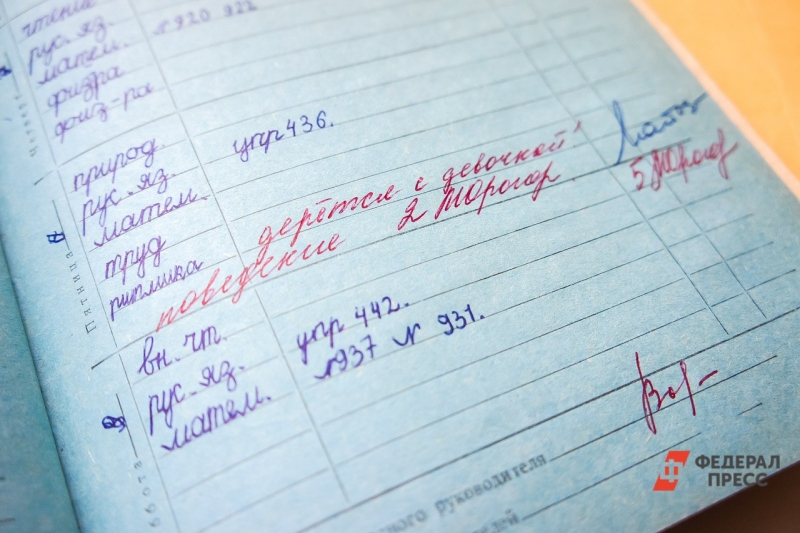 чтение
рус. яз. №920 922
матем.
физра
физ-ра
природ
рус. яз. упр 436.
матем.
труд дерётся с девочкой!
ритмика
поведение 2
5
Пятница
вн. чт.
рус. яз. упр 442.
матем. №937 № 931.
ного руководителя
ФЕДЕРАЛ
ПРЕСС